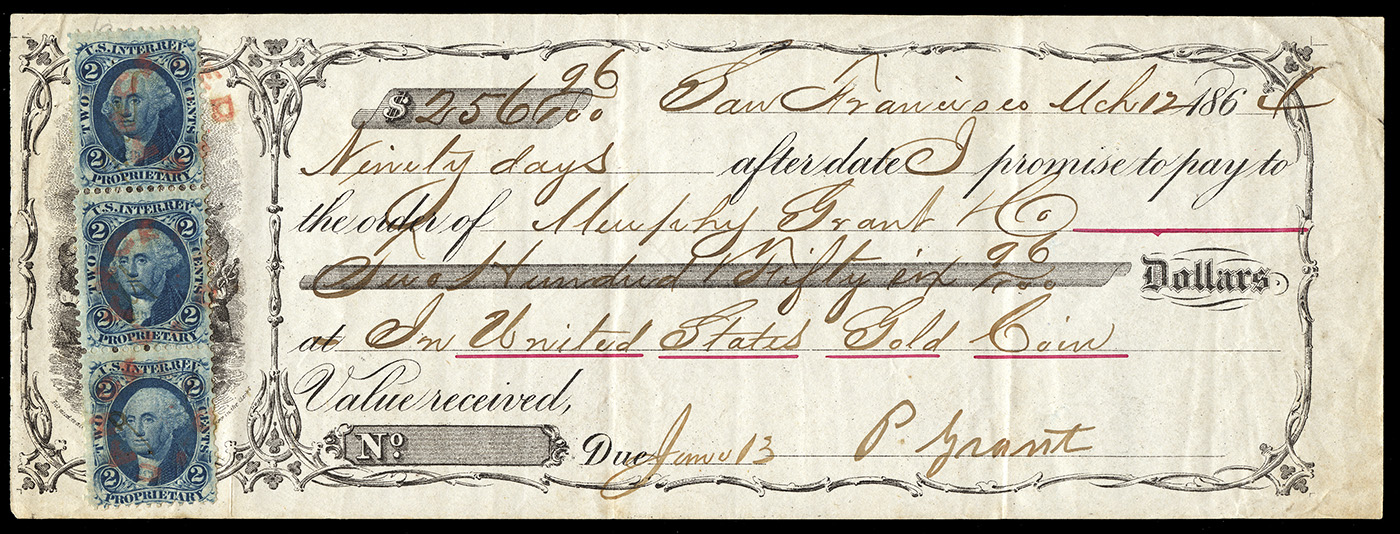 U.S. INTER. REV.
2 2
TWO CENTS
2 2
PROPRIETARY
U.S. INTER. REV.
2 2
TWO CENTS
2 2
PROPRIETARY
U.S. INTER. REV.
2 2
TWO CENTS
2 2
PROPRIETARY
$ 256 96/100 San Francisco Mch 12 1864
Ninety days after date I promise to pay to
the order of Murphy Grant & Co
Two Hundred & Fifty six 96/100 Dollars.
at In United States Gold Coin
Value received,
No. Due June 13 P. Grant